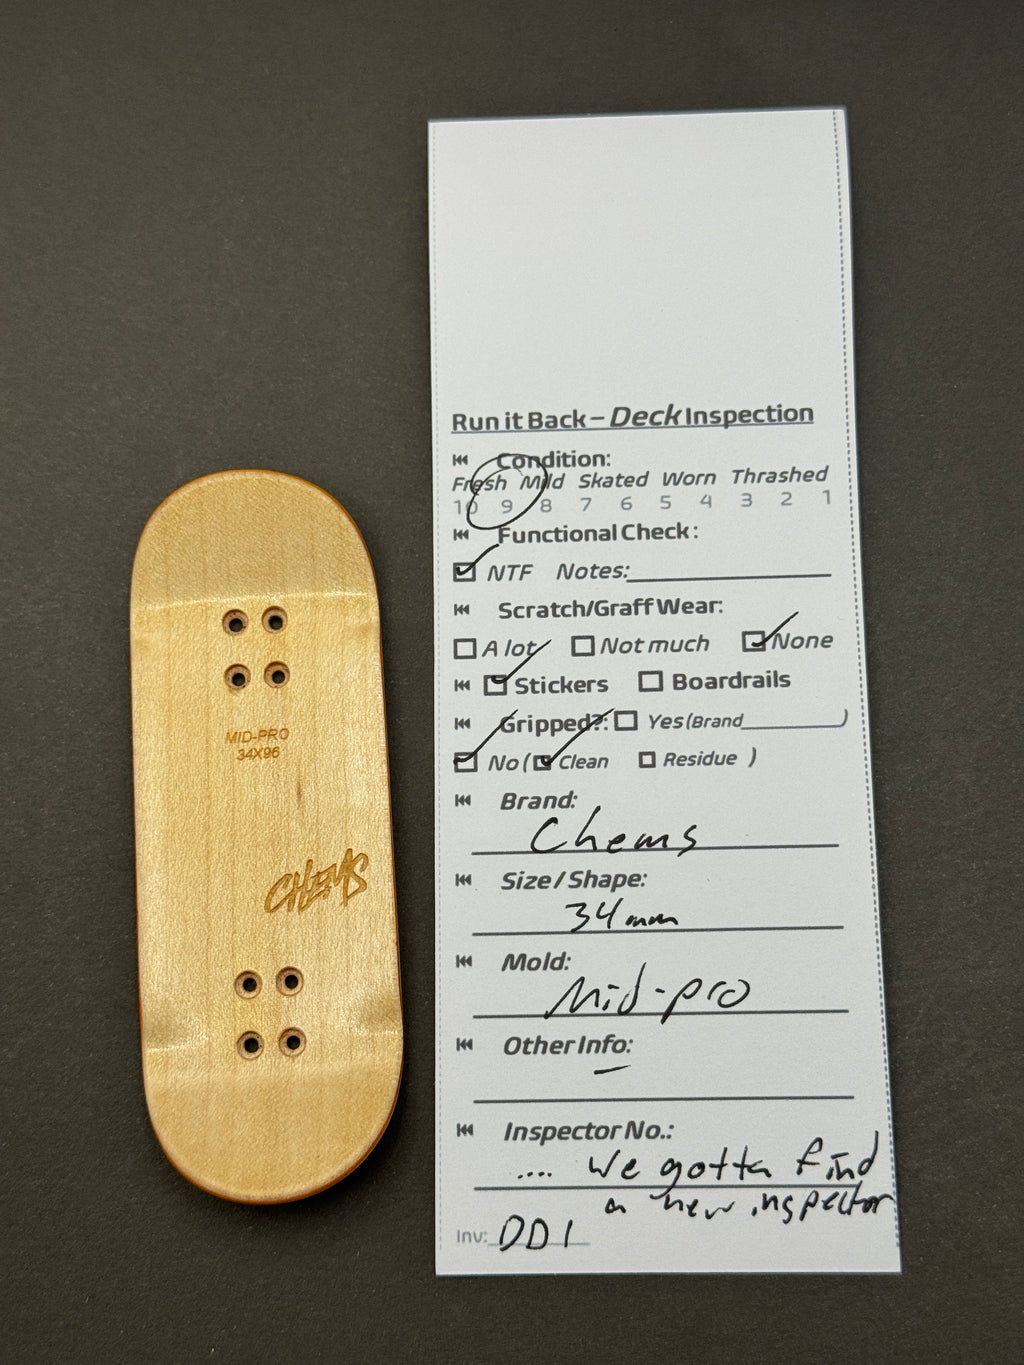 MID-PRO
34X96
CHEMS
Run it Back – Deck Inspection
Condition:
Fresh Mild Skated Worn Thrashed
10 9 8 7 6 5 4 3 2 1
Functional Check:
NTF Notes:
Scratch/Graff Wear:
A lot Not much None
Stickers Boardrails
Gripped?: Yes (Brand )
No ( Clean Residue )
Brand:
Chems
Size / Shape:
34mm
Mold:
Mid-pro
Other Info:
Inspector No.:
.... We gotta find
a new inspector
Inv: DD1